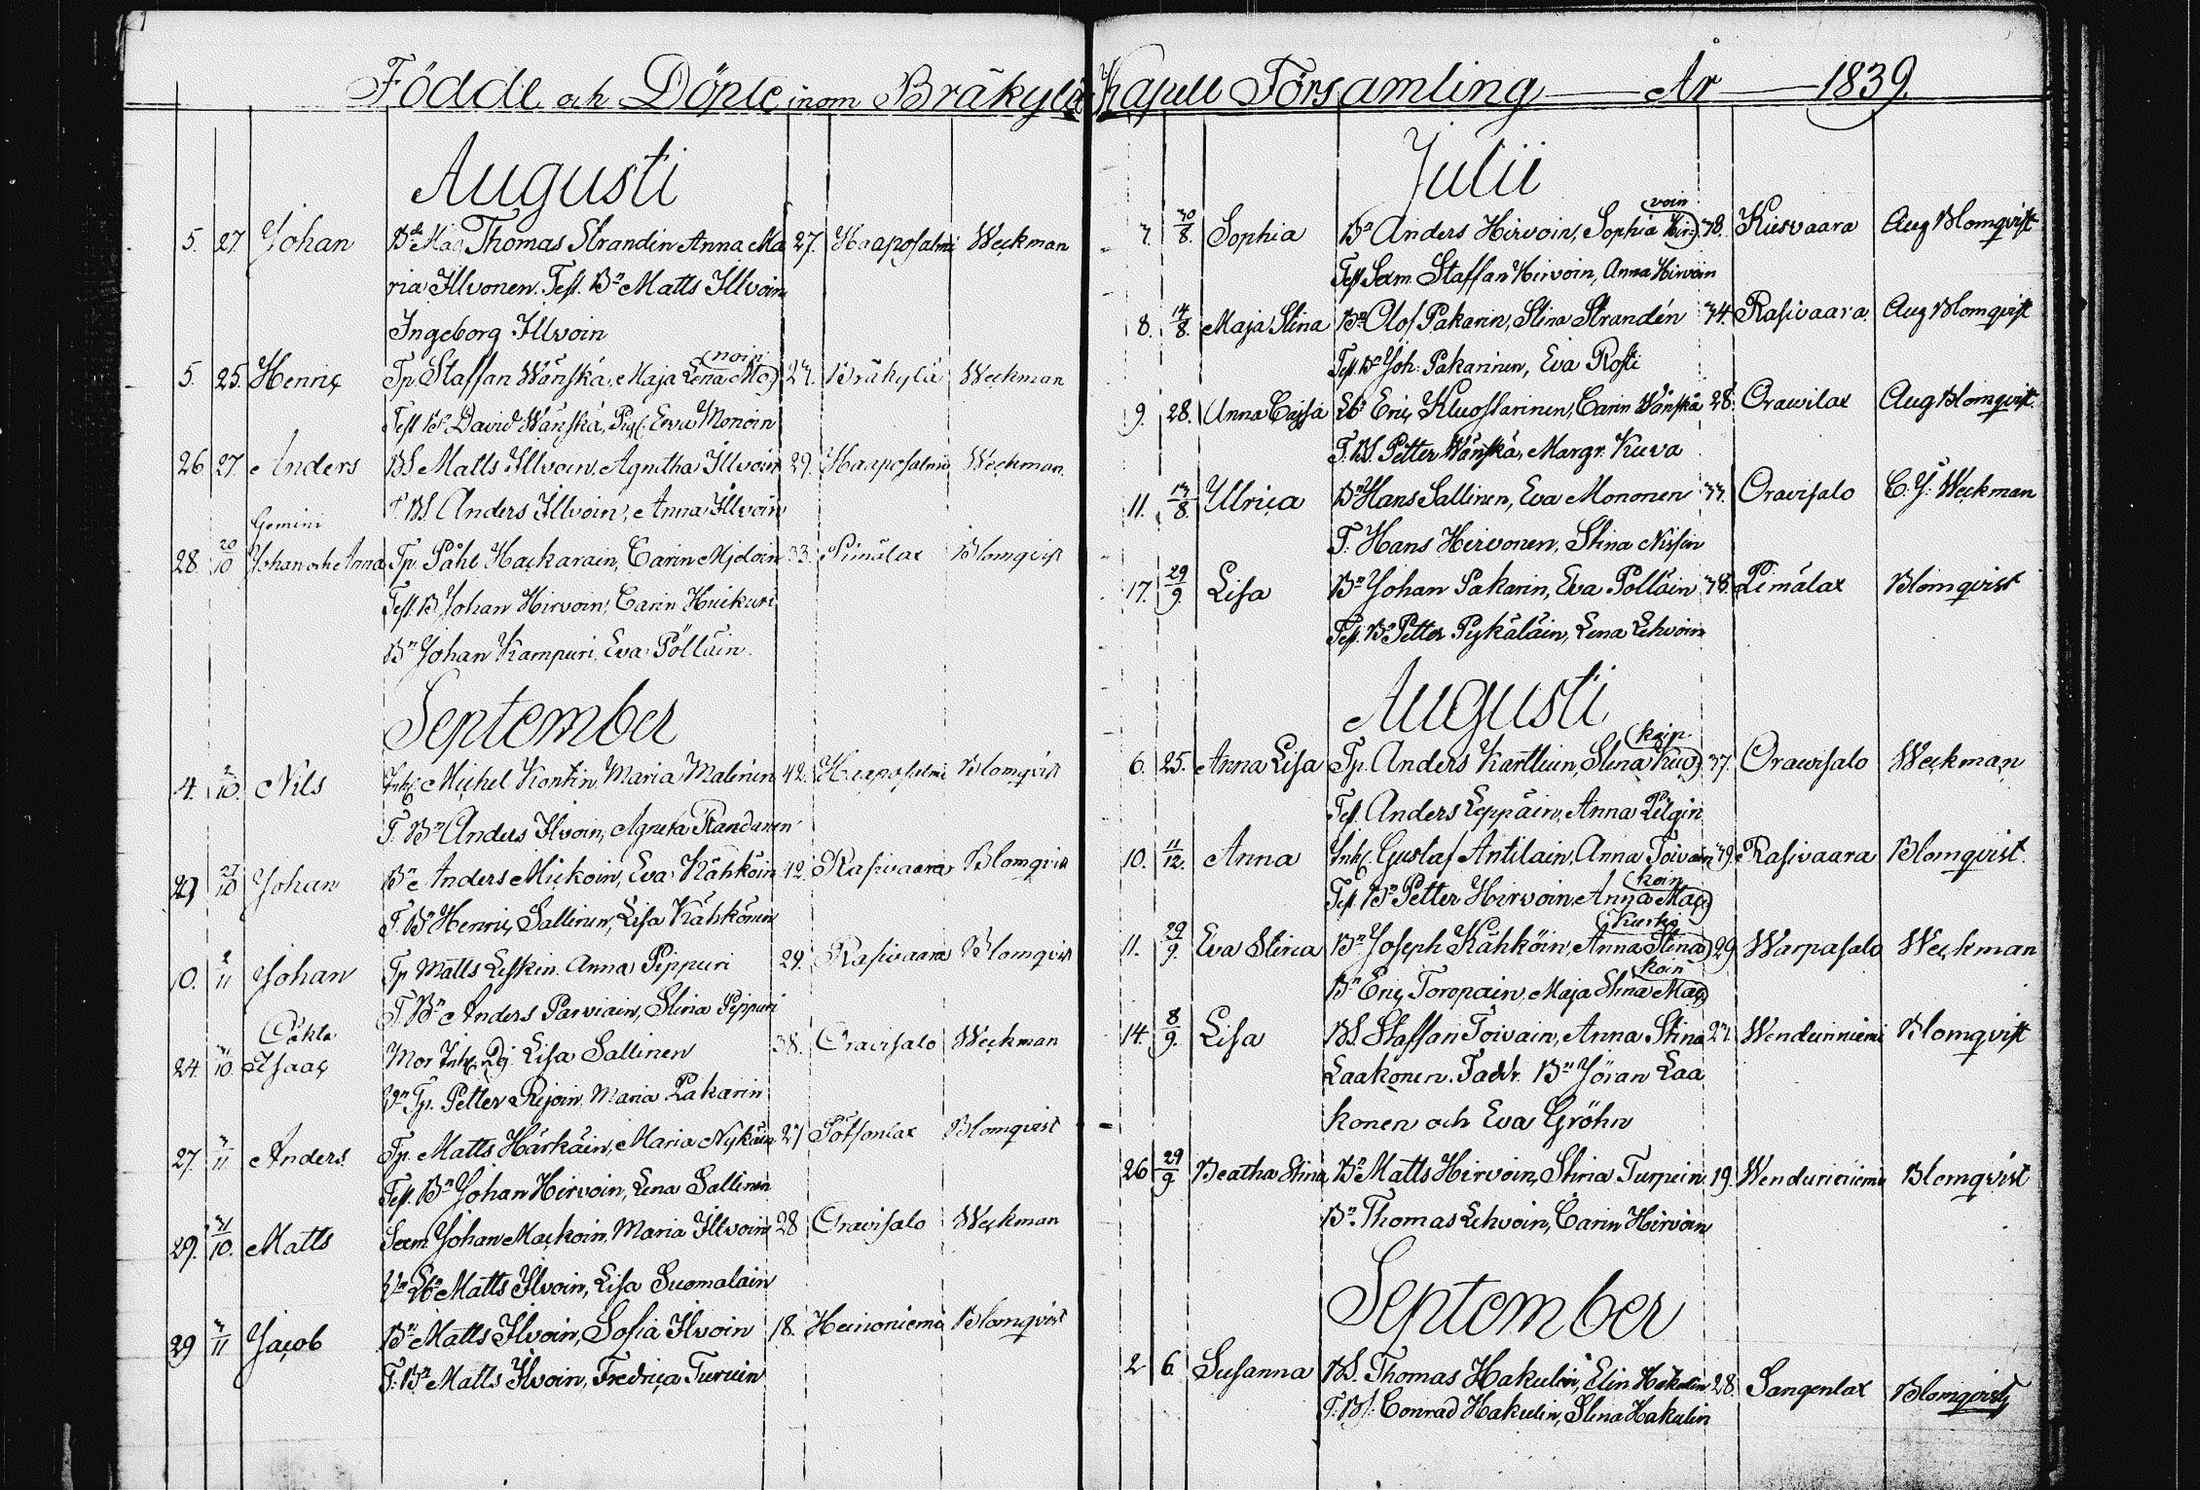 Födde och Döpte inom Bräkylä Kapell Församling År 1839.
Augusti
5. 27 Johan Bd Mag Thomas Strandin Anna Ma 27. Haaposalmi Weckman
ria Illvonen. Test. Bn Matts Illvoin
Ingeborg Illvoin
noin
5. 25. Henric Tp. Staffan Wänskä, Maja Lena Mo 27. Bräkylä Weckman
Test BS David Wänskä, Pig. Ewa Monoin
26 27. Anders BS Matts Illvoin, Agnitha Illvoin 29. Haaposalmi Weckman.
T. BS Anders Illvoin, Anna Illvoin
Gemini
28 20/10 Johan och Anna Tp. Påhl Hackarain, Carin Mjeloin 33. Pimälax Blomqvist
Test. B Johan Hirvoin, Carin Huikuri
Bn Johan Kampuri, Eva Pölläin.
September
4. 2/10. Nils Inh. Michel Kontin, Maria Malinen 42. Haaposalmi Blomqvist
T. Bn Anders Ilvoin, Agneta Randanen
29 27/10 Johan Bn Anders Mickoin, Eva Kähköin 42. Rasivaara Blomqvist
T. Bn Henric Sallinen, Lisa Kähkönen
10. 2/11 Johan Tp Matts Leskin. Anna Pippuri 29. Rasivaara Blomqvist
T. Bn Anders Parviain, Stina Pippuri
Oäkta
24. /10. Isaac Mor Inh. Dj. Lisa Sallinen 38. Oravisalo Weckman
Vn Tp. Petter Rejoin, Maria Pakarin
27. /11 Anders. Tp. Matts Härkäin, Maria Nykäin 27 Pötsönlax Blomqvist
Test. Bn Johan Hirvoin, Lena Sallinen
29. /10. Matts Sexm. Johan Mackoin, Maria Illvoin 28 Oravisalo Weckman
Vn Matts Ilvoin, Lisa Suomalain
29 /11 Jacob Bn Matts Ilvoin, Sofia Ilvoin 18. Heinoniemi Blomqvist
T. Bn Matts Ilvoin, Fredrica Turuin
Julii
voin
7. /8. Sophia Bn Anders Hirvoin, Sophia Hir 38. Kiesvaara Aug Blomqvist
Test Sexm. Staffan Hirvoin, Anna Hirvoin
8. 14/8. Maja Stina Bn Olof Pakarin, Stina Strandén 34. Rasivaara. Aug Blomqvist
Test. Bn Joh: Pakarinen, Eva Rosti
9. 28. Anna Cajsa Eric Kluossarinen, Carin Wänskä 28. Orawilax Aug Blomqvist.
T. BS. Petter Wänskä, Margr. Kuva
11. 13/8. Ulrica Bn Hans Sallinen, Eva Mononen 33. Oravisalo C. J. Weckman
T. Hans Hirvonen, Stina Nissin
17. 29/9. Lisa Bn Johan Pakarin, Eva Pölläin 38. Pimälax Blomqvist
Test. Bn Petter Pykäläin, Lena Lehvoin
Augusti
koin
6. 25. Anna Lisa Tp. Anders Karttuin, Stina Kuo 37. Orawisalo Weckman
Test. Anders Leppäin, Anna Pilgin
10. 11/12. Anna Inh. Gustaf Antilain, Anna Toivain 39. Rasivaara Blomqvist.
koin
Test. Bn Petter Hirvoin, Anna Mac
Kurki
11. 29/9. Eva Stina Bn Joseph Kähköin, Anna Stina 29. Warpasalo Weckman
koin
Bn Eric Toropain, Maja Stina Mac
14. 8/9. Lisa BS. Staffan Toivain, Anna Stina 27. Wenduinniemi Blomqvist
Laakonen. Faddr. Bn Jöran Laa
konen och Eva Gröhn
26 29/9 Beatha Stina Bn Matts Hirvoin, Stina Turpein 19. Wenduinniemi Blomqvist
Bn. Thomas Lehvoin, Carin Hirvoin
September
2 6. Susanna BS. Thomas Hakulin, Elin Hakulin 28. Sangenlax Blomqvist
T. BS. Conrad Hakulin, Stina Hakulin